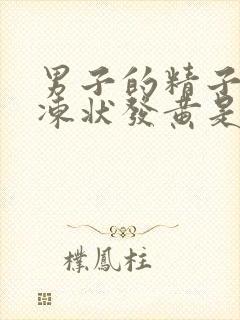 男子的精子
凍狀發黃是
樸鳳柱